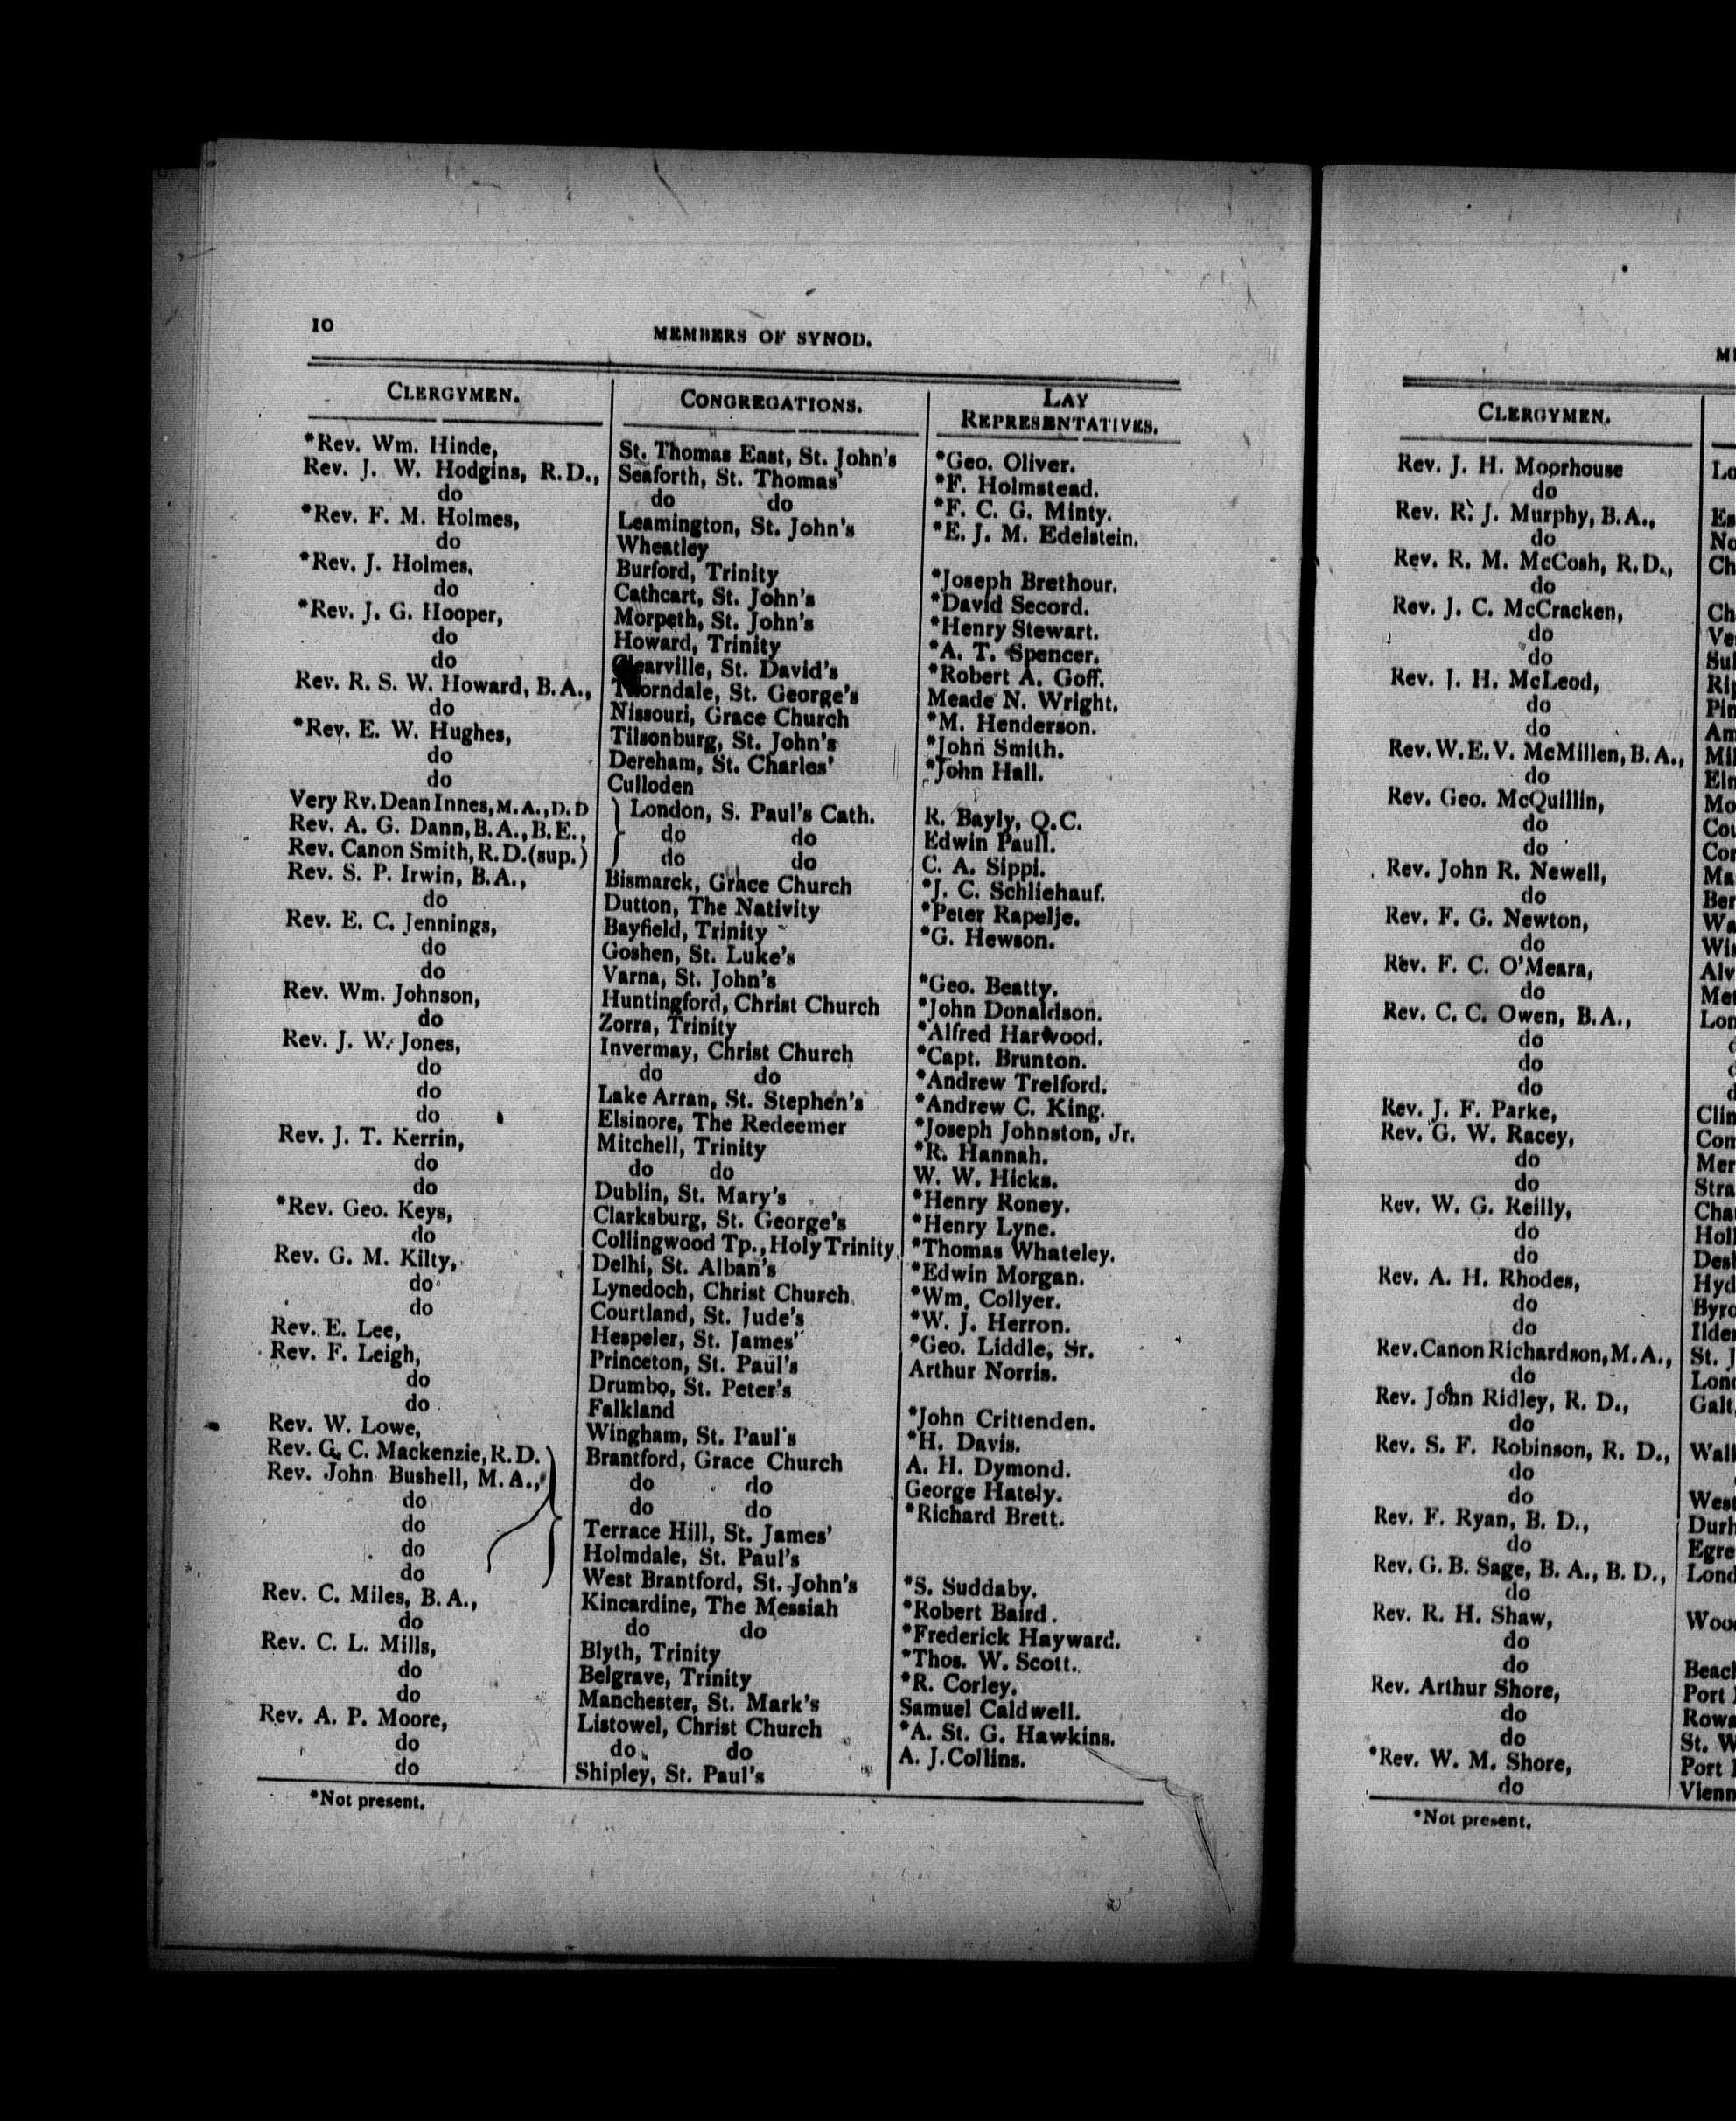 10
MEMBERS OF SYNOD.
CLERGYMEN. CONGREGATIONS. LAY REPRESENTATIVES.
*Rev. Wm. Hinde, St. Thomas East, St. John's *Geo. Oliver.
Rev. J. W. Hodgins, R.D., Seaforth, St. Thomas' *F. Holmstead.
do do do *F. C. G. Minty.
*Rev. F. M. Holmes, Leamington, St. John's *E. J. M. Edelstein.
do Wheatley
*Rev. J. Holmes, Burford, Trinity *Joseph Brethour.
do Cathcart, St. John's *David Secord.
*Rev. J. G. Hooper, Morpeth, St. John's *Henry Stewart.
do Howard, Trinity *A. T. Spencer.
do Clearville, St. David's *Robert A. Goff.
Rev. R. S. W. Howard, B.A., Thorndale, St. George's Meade N. Wright.
do Nissouri, Grace Church *M. Henderson.
*Rev. E. W. Hughes, Tilsonburg, St. John's *John Smith.
do Dereham, St. Charles' *John Hall.
do Culloden
Very Rv. Dean Innes, M.A., D.D London, S. Paul's Cath. R. Bayly, Q.C.
Rev. A. G. Dann, B.A., B.E., do do Edwin Paull.
Rev. Canon Smith, R.D. (sup.) do do C. A. Sippi.
Rev. S. P. Irwin, B.A., Bismarck, Grace Church *J. C. Schliehauf.
do Dutton, The Nativity *Peter Rapelje.
Rev. E. C. Jennings, Bayfield, Trinity *G. Hewson.
do Goshen, St. Luke's
do Varna, St. John's *Geo. Beatty.
Rev. Wm. Johnson, Huntingford, Christ Church *John Donaldson.
do Zorra, Trinity *Alfred Harwood.
Rev. J. W. Jones, Invermay, Christ Church *Capt. Brunton.
do do do *Andrew Trelford.
do Lake Arran, St. Stephen's *Andrew C. King.
do Elsinore, The Redeemer *Joseph Johnston, Jr.
Rev. J. T. Kerrin, Mitchell, Trinity *R. Hannah.
do do do W. W. Hicks.
do Dublin, St. Mary's *Henry Roney.
*Rev. Geo. Keys, Clarksburg, St. George's *Henry Lyne.
do Collingwood Tp., Holy Trinity *Thomas Whateley.
Rev. G. M. Kilty, Delhi, St. Alban's *Edwin Morgan.
do Lynedoch, Christ Church *Wm. Collyer.
do Courtland, St. Jude's *W. J. Herron.
Rev. E. Lee, Hespeler, St. James' *Geo. Liddle, Sr.
Rev. F. Leigh, Princeton, St. Paul's Arthur Norris.
do Drumbo, St. Peter's
do Falkland *John Crittenden.
Rev. W. Lowe, Wingham, St. Paul's *H. Davis.
Rev. G. C. Mackenzie, R.D. Brantford, Grace Church A. H. Dymond.
Rev. John Bushell, M.A., do do George Hately.
do do do *Richard Brett.
do Terrace Hill, St. James'
do Holmdale, St. Paul's
do West Brantford, St. John's *S. Suddaby.
Rev. C. Miles, B.A., Kincardine, The Messiah *Robert Baird.
do do do *Frederick Hayward.
Rev. C. L. Mills, Blyth, Trinity *Thos. W. Scott.
do Belgrave, Trinity *R. Corley.
do Manchester, St. Mark's Samuel Caldwell.
Rev. A. P. Moore, Listowel, Christ Church *A. St. G. Hawkins.
do do do A. J. Collins.
do Shipley, St. Paul's
*Not present.
CLERGYMEN.
Rev. J. H. Moorhouse
do
Rev. R. J. Murphy, B.A.,
do
Rev. R. M. McCosh, R.D.,
do
Rev. J. C. McCracken,
do
do
Rev. J. H. McLeod,
do
do
Rev. W. E. V. McMillen, B.A.,
do
Rev. Geo. McQuillin,
do
do
Rev. John R. Newell,
do
Rev. F. G. Newton,
do
Rev. F. C. O'Meara,
do
Rev. C. C. Owen, B.A.,
do
do
do
Rev. J. F. Parke,
Rev. G. W. Racey,
do
do
Rev. W. G. Reilly,
do
do
Rev. A. H. Rhodes,
do
do
Rev. Canon Richardson, M.A.,
do
Rev. John Ridley, R. D.,
do
Rev. S. F. Robinson, R. D.,
do
do
Rev. F. Ryan, B. D.,
do
Rev. G. B. Sage, B. A., B. D.,
do
Rev. R. H. Shaw,
do
do
Rev. Arthur Shore,
do
do
*Rev. W. M. Shore,
do
*Not present.